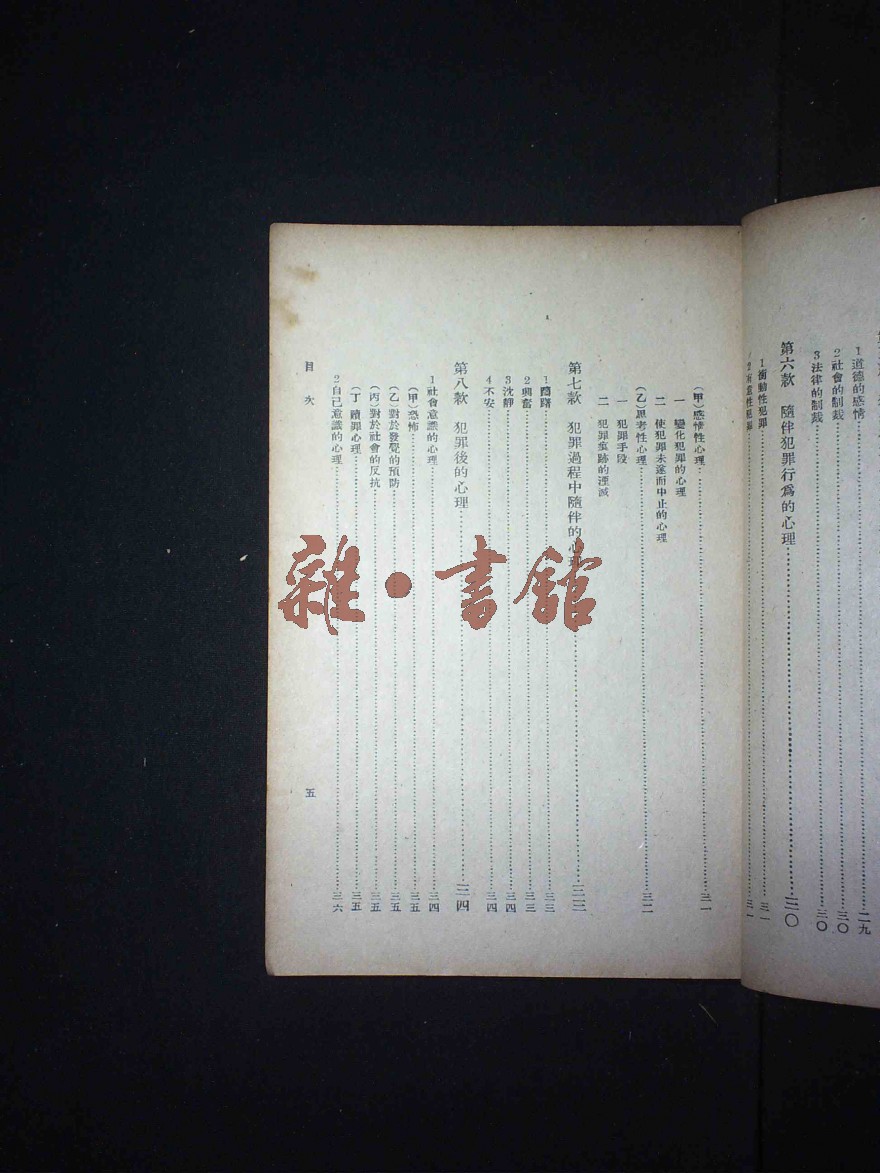 1道德的感情……二九
2社會的制裁……三〇
3法律的制裁……三〇
第六款　隨伴犯罪行爲的心理……三〇
1衝動性犯罪……三一
2有意性犯罪……三一
(甲)感情性心理……三一
一　變化犯罪的心理
二　使犯罪未遂而中止的心理
(乙)思考性心理……三二
一　犯罪手段
二　犯罪痕跡的湮滅
第七款　犯罪過程中隨伴的心理……三三
1躊躇……三三
2興奮……三三
3沈靜……三四
4不安……三四
第八款　犯罪後的心理……三四
1社會意識的心理……三四
(甲)恐怖……三五
(乙)對於發覺的預防……三五
(丙)對於社會的反抗……三五
(丁)贖罪心理……三五
2自己意識的心理……三六
目次
五
雜·書館